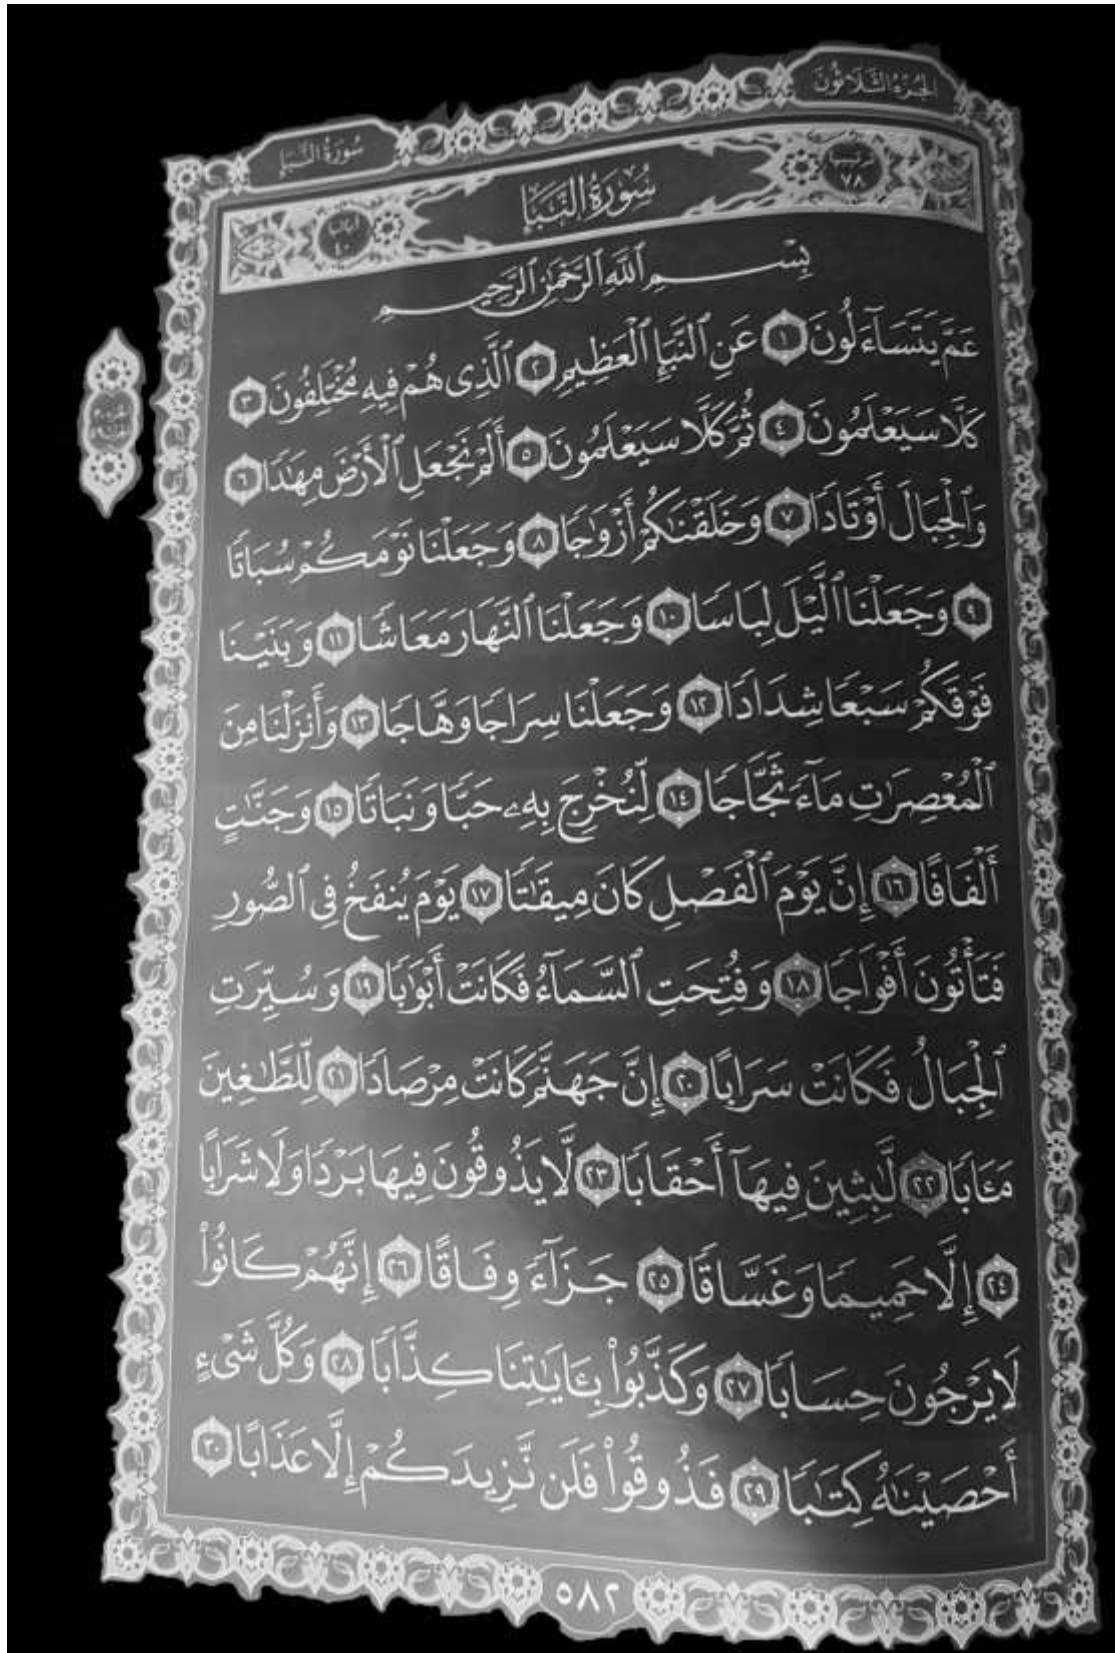 الجُزْءُ الثَّلَاثُونَ
سُورَةُ النَّبَإِ
٧٨
سُورَةُ النَّبَإِ
٤٠
بِسْمِ ٱللَّهِ ٱلرَّحْمَٰنِ ٱلرَّحِيمِ
عَمَّ يَتَسَآءَلُونَ ١ عَنِ ٱلنَّبَإِ ٱلْعَظِيمِ ٢ ٱلَّذِى هُمْ فِيهِ مُخْتَلِفُونَ ٣
كَلَّا سَيَعْلَمُونَ ٤ ثُمَّ كَلَّا سَيَعْلَمُونَ ٥ أَلَمْ نَجْعَلِ ٱلْأَرْضَ مِهَٰدًا ٦
وَٱلْجِبَالَ أَوْتَادًا ٧ وَخَلَقْنَٰكُمْ أَزْوَٰجًا ٨ وَجَعَلْنَا نَوْمَكُمْ سُبَاتًا
٩ وَجَعَلْنَا ٱلَّيْلَ لِبَاسًا ١٠ وَجَعَلْنَا ٱلنَّهَارَ مَعَاشًا ١١ وَبَنَيْنَا
فَوْقَكُمْ سَبْعًا شِدَادًا ١٢ وَجَعَلْنَا سِرَاجًا وَهَّاجًا ١٣ وَأَنزَلْنَا مِنَ
ٱلْمُعْصِرَٰتِ مَآءً ثَجَّاجًا ١٤ لِّنُخْرِجَ بِهِۦ حَبًّا وَنَبَاتًا ١٥ وَجَنَّٰتٍ
أَلْفَافًا ١٦ إِنَّ يَوْمَ ٱلْفَصْلِ كَانَ مِيقَٰتًا ١٧ يَوْمَ يُنفَخُ فِى ٱلصُّورِ
فَتَأْتُونَ أَفْوَاجًا ١٨ وَفُتِحَتِ ٱلسَّمَآءُ فَكَانَتْ أَبْوَٰبًا ١٩ وَسُيِّرَتِ
ٱلْجِبَالُ فَكَانَتْ سَرَابًا ٢٠ إِنَّ جَهَنَّمَ كَانَتْ مِرْصَادًا ٢١ لِّلطَّٰغِينَ
مَـَٔابًا ٢٢ لَّٰبِثِينَ فِيهَآ أَحْقَابًا ٢٣ لَّا يَذُوقُونَ فِيهَا بَرْدًا وَلَا شَرَابًا
٢٤ إِلَّا حَمِيمًا وَغَسَّاقًا ٢٥ جَزَآءً وِفَاقًا ٢٦ إِنَّهُمْ كَانُوا۟
لَا يَرْجُونَ حِسَابًا ٢٧ وَكَذَّبُوا۟ بِـَٔايَٰتِنَا كِذَّابًا ٢٨ وَكُلَّ شَىْءٍ
أَحْصَيْنَٰهُ كِتَٰبًا ٢٩ فَذُوقُوا۟ فَلَن نَّزِيدَكُمْ إِلَّا عَذَابًا ٣٠
٥٨٢